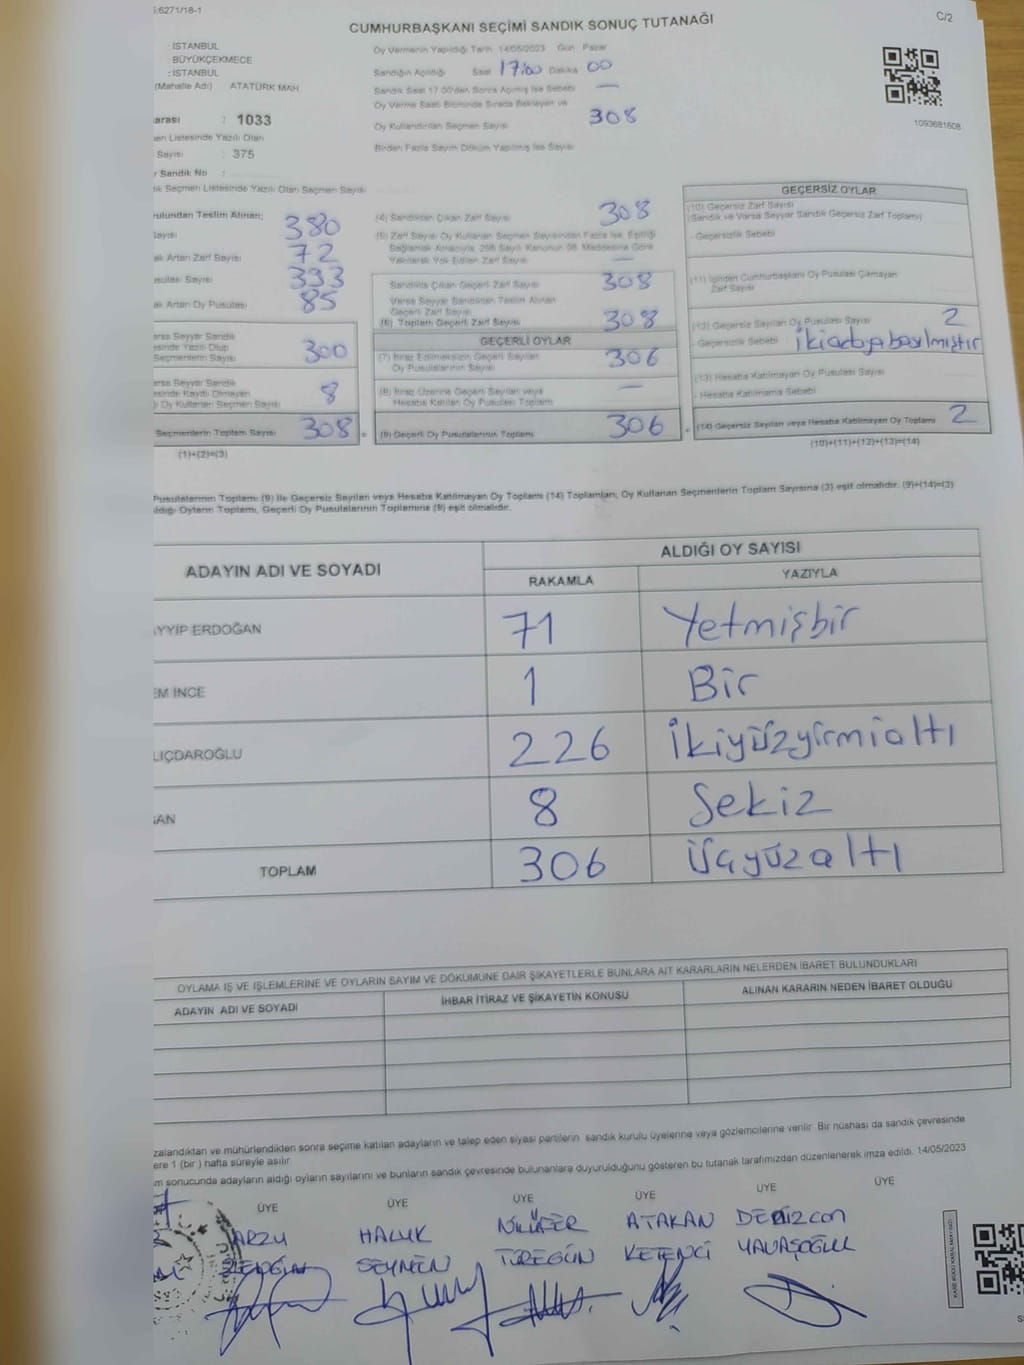 6271/18-1
CUMHURBAŞKANI SEÇİMİ SANDIK SONUÇ TUTANAĞI
C/2
: İSTANBUL
: BÜYÜKÇEKMECE
: İSTANBUL
(Mahalle Adı) ATATÜRK MAH
Oy Vermenin Yapıldığı Tarih 14/05/2023 Gün Pazar
Sandığın Açıldığı Saat 17:00 Dakika 00
Sandık Saat 17.00'den Sonra Açımış İse Sebebi —
Oy Verme Saati Bitiminde Sırada Bekleyen ve
Oy Kullandırılan Seçmen Sayısı 308
Birden Fazla Sayım Döküm Yapılmış İse Sayısı
1093681608
arası : 1033
en Listesinde Yazılı Olan
Sayısı : 375
r Sandık No :
ık Seçmen Listesinde Yazılı Olan Seçmen Sayısı
rulundan Teslim Alınan;
ayısı 380
ak Artan Zarf Sayısı 72
usulası Sayısı 393
ak Artan Oy Pusulası 85
arsa Seyyar Sandık
esinde Yazılı Olup
Seçmenlerin Sayısı 300
arsa Seyyar Sandık
esinde Kayıtlı Olmayan
Oy Kullanan Seçmen Sayısı 8
Seçmenlerin Toplam Sayısı 308
(1)+(2)=(3)
(4) Sandıktan Çıkan Zarf Sayısı 308
(5) Zarf Sayısı Oy Kullanan Seçmen Sayısından Fazla İse, Eşitliği
Sağlamak Amacıyla 298 Sayılı Kanunun 98. Maddesine Göre
Yakılarak Yok Edilen Zarf Sayısı —
Sandıkta Çıkan Geçerli Zarf Sayısı 308
Varsa Seyyar Sandıktan Teslim Alınan
Geçerli Zarf Sayısı
(6) Toplam Geçerli Zarf Sayısı 308
GEÇERLİ OYLAR
(7) İtiraz Edilmeksizin Geçerli Sayılan
Oy Pusulalarının Sayısı 306
(8) İtiraz Üzerine Geçerli Sayılan veya
Hesaba Katılan Oy Pusulası Toplamı —
(9) Geçerli Oy Pusulalarının Toplamı 306
GEÇERSİZ OYLAR
(10) Geçersiz Zarf Sayısı
(Sandık ve Varsa Seyyar Sandık Geçersiz Zarf Toplamı)
- Geçersizlik Sebebi
(11) İçinden Cumhurbaşkanı Oy Pusulası Çıkmayan
Zarf Sayısı
(12) Geçersiz Sayılan Oy Pusulası Sayısı 2
- Geçersizlik Sebebi iki adaya basılmıştır
(13) Hesaba Katılmayan Oy Pusulası Sayısı
- Hesaba Katılmama Sebebi
(14) Geçersiz Sayılan veya Hesaba Katılmayan Oy Toplamı 2
(10)+(11)+(12)+(13)=(14)
Pusulalarının Toplamı (9) ile Geçersiz Sayılan veya Hesaba Katılmayan Oy Toplamı (14) Toplamları, Oy Kullanan Seçmenlerin Toplam Sayısına (3) eşit olmalıdır. (9)+(14)=(3)
aldığı Oyların Toplamı, Geçerli Oy Pusulalarının Toplamına (9) eşit olmalıdır.
ADAYIN ADI VE SOYADI
ALDIĞI OY SAYISI
RAKAMLA YAZIYLA
AYYİP ERDOĞAN 71 Yetmişbir
EM İNCE 1 Bir
LIÇDAROĞLU 226 İkiyüzyirmialtı
ĞAN 8 Sekiz
TOPLAM 306 üçyüzaltı
OYLAMA İŞ VE İŞLEMLERİNE VE OYLARIN SAYIM VE DÖKÜMÜNE DAİR ŞİKAYETLERLE BUNLARA AİT KARARLARIN NELERDEN İBARET BULUNDUKLARI
ADAYIN ADI VE SOYADI İHBAR İTİRAZ VE ŞİKAYETİN KONUSU ALINAN KARARIN NEDEN İBARET OLDUĞU
zalandıktan ve mühürlendikten sonra seçime katılan adayların ve talep eden siyasi partilerin sandık kurulu üyelerine veya gözlemcilerine verilir. Bir nüshası da sandık çevresinde
ere 1 (bir) hafta süreyle asılır.
m sonucunda adayların aldığı oyların sayılarını ve bunların sandık çevresinde bulunanlara duyurulduğunu gösteren bu tutanak tarafımızdan düzenlenerek imza edildi. 14/05/2023
ÜYE ÜYE ÜYE ÜYE ÜYE ÜYE
ARZU HALUK NİLÜFER ATAKAN DENİZCAN
SEYMEN TÜREGÜN KETENCİ YAVAŞOĞLU